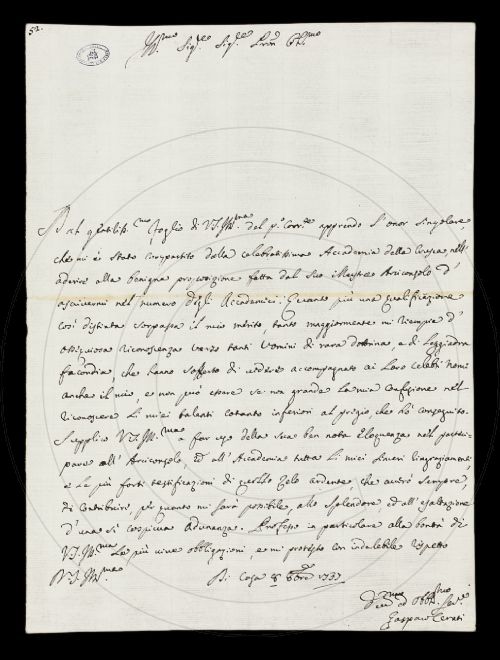 52.
Ill.mo Sig.re Sig.re Pron Col.mo
Dal gentiliss.mo foglio di VS Ill.ma del p.o Corr.te apprendo l'onor singolare,
che mi è stato compartito dalla celebratissima Accademia della Crusca nell'
aderire alla benigna proposizione fatta dal Suo Illustre Arciconsolo d'
ascrivermi nel numero degli Accademici. Quanto più una qualificazione
così distinta sorpassa il mio merito, tanto maggiormente mi riempie d'
ossequiosa riconoscenza verso tanti Uomini di rara dottrina, e di leggiadra
facondia, che hanno sofferto di vedere accompagnato ai Loro celebri nomi
anche il mio, e non può essere se non grande la mia confusione nel
riconoscere li miei talenti cotanto inferiori al pregio, che hò conseguito.
Supplico VS Ill.ma a far uso della sua ben nota Eloquenza nel parteci-
pare all' Arciconsolo, ed all' Accademia tutta li miei sinceri ringraziamenti,
e le più forti testificazioni di quello zelo ardente, che averò sempre,
di contribuire, per quanto mi sarà possibile, allo splendore, ed all' esaltazione
d'una sì cospicua Adunanza. Professo in particolare alla bontà di
VS Ill.ma le più vive obbligazioni, e mi protesto con indelebile rispetto
D VS Ill.ma
Di Casa 8 8bre 1737
Dev.mo ed Obb.mo Ser.e
Gaspare Cerati